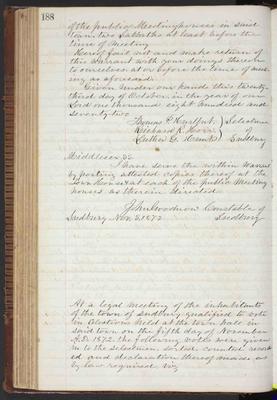 188
of the public Meeting houses in said
town two Sabbaths at least before the
time of Meeting
Hereof fail not and make return of
this Warrant with your doings thereon
to ourselves at or before the time of meet
ing as aforesaid.
Given under our hands this twenty
third day of October in the year of our
Lord one thousand eight hundred and
seventy two
Thomas P. Hurlbut Selectmen
Richard R. Horr of
Luther G. Sudbury
Middlesex SS.
I have serve the within Warrant
by posting attested copies thereof at the
Town house at each of the public Meeting
houses as therein directed
John Goodnow Constable of
Sudbury Nov. 5, 1872 Sudbury
At a legal meeting of the inhabitants
of the town of Sudbury qualified to vote
in Elections held at the town hall in
said town on the fifth day of November
A.D. 1872. the following votes were given
in to the selectmen sorted counted record
ed and declaration thereof made as
by law required viz